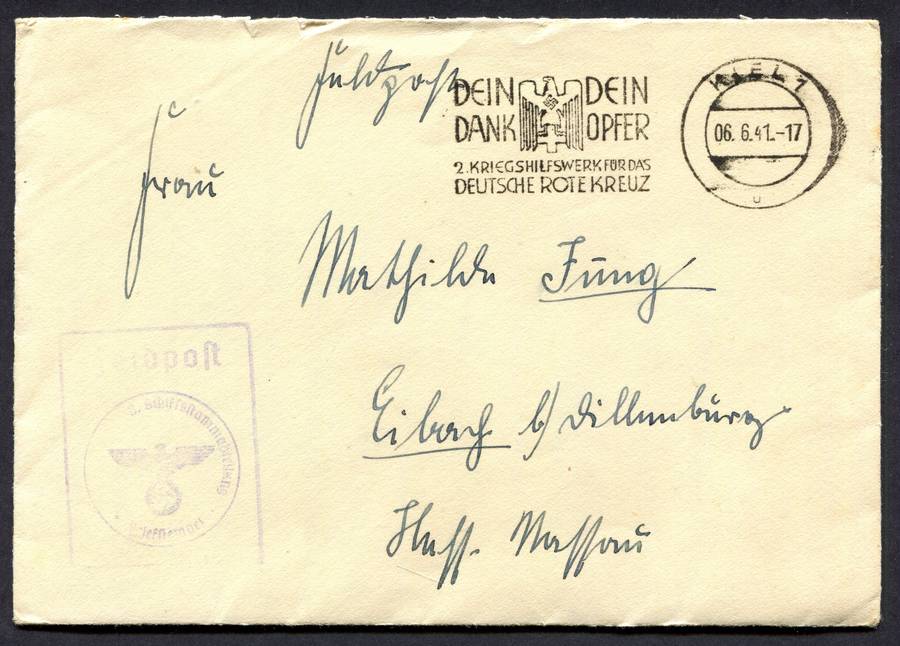 Feldpost
DEIN DEIN
DANK OPFER
2. KRIEGSHILFSWERK FÜR DAS
DEUTSCHE ROTE KREUZ
KIEL 1
06. 6.41.-17
u
Frau
Mathilde Jung
Eibach b/ Dillenburg
Hess. Nassau
Feldpost
Schiffsstammabteilung
Briefstempel